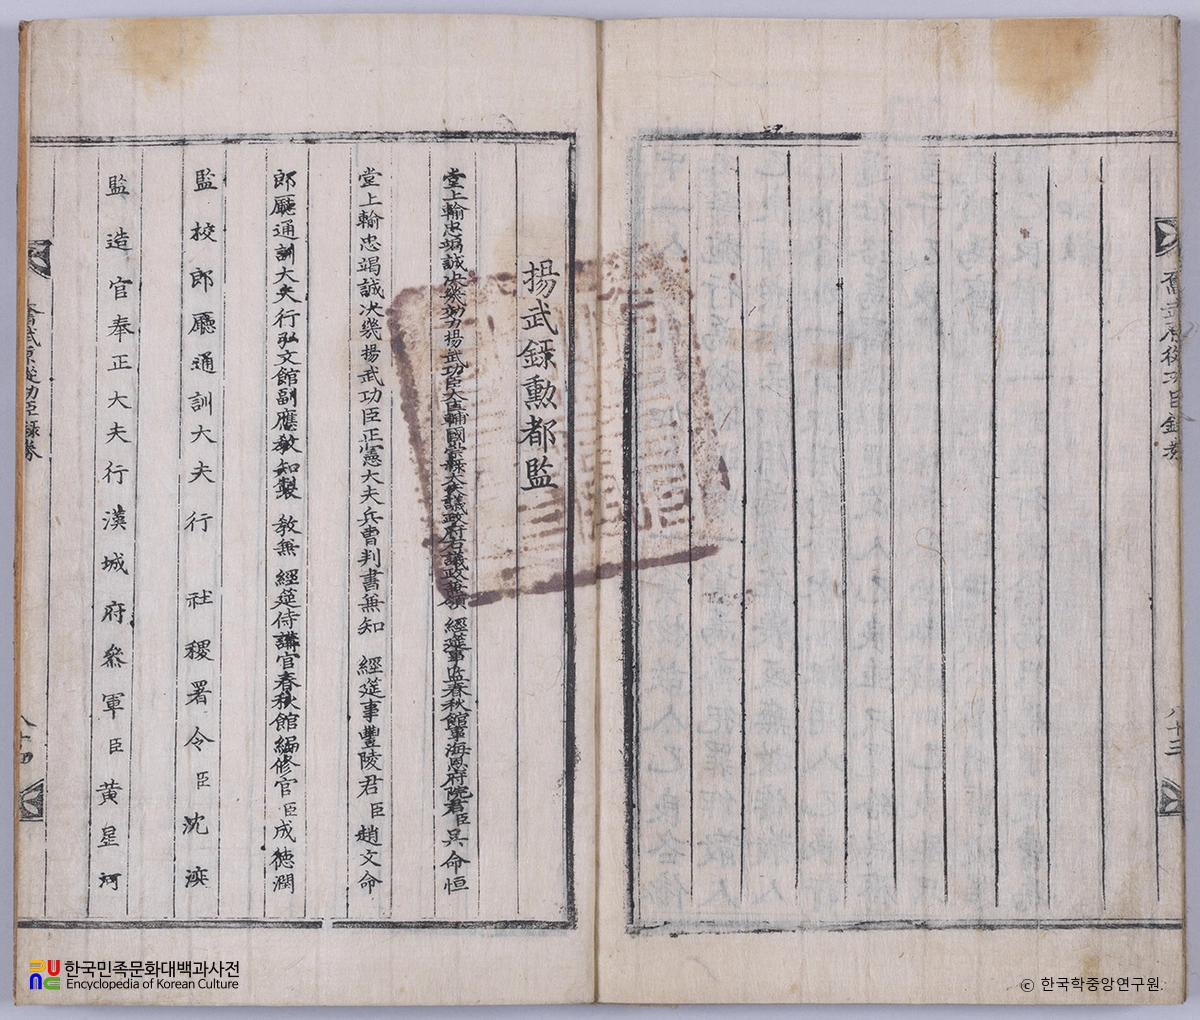 奮武原從功臣錄卷
八十三
揚武錄勳都監
堂上輸忠竭誠決幾効力揚武功臣大匡輔國崇祿大夫議政府右議政兼領 經筵事監春秋館事海恩府院君臣吳命恒
堂上輸忠竭誠决幾揚武功臣正憲大夫兵曹判書兼知 經筵事豐陵君臣趙文命
郎廳通訓大夫行弘文館副應敎知製 敎兼 經筵侍講官春秋館編修官臣成德潤
監校郎廳通訓大夫行 社稷署令臣沈
監造官奉正大夫行漢城府參軍臣黃星河
奮武原從功臣錄卷
八十四
한국민족문화대백과사전
Encyclopedia of Korean Culture
ⓒ 한국학중앙연구원.